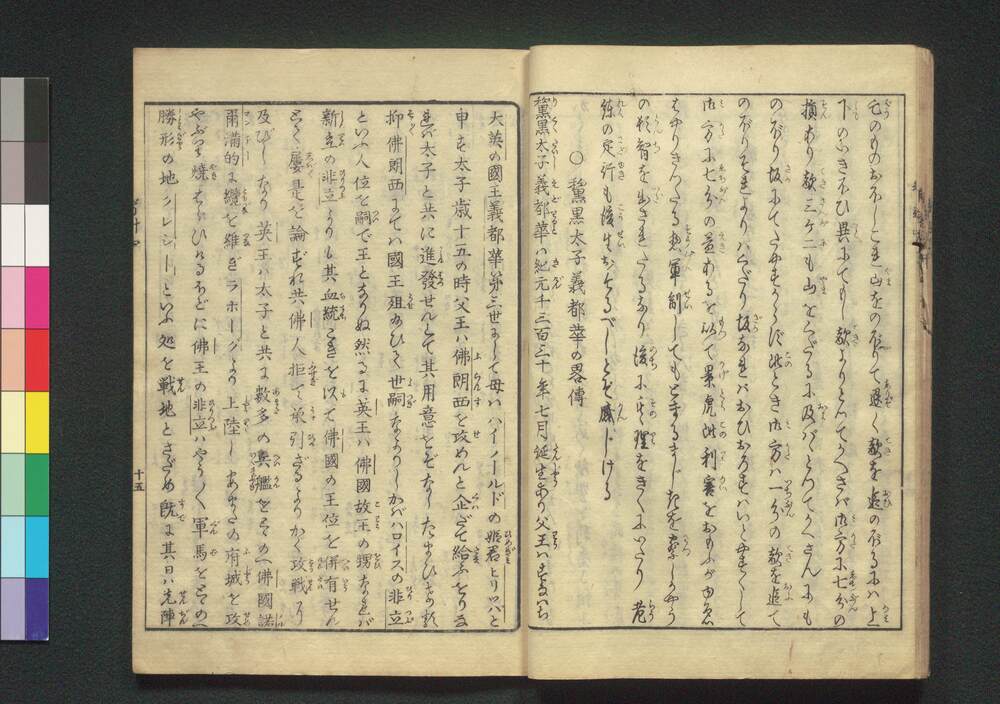 乞のものおふしこれ山をのぼりて退く敵を追のぼるふハ上
下のいきほひ異にてもし敵よりとつてかへさバ味方に七分の
損あり敵三ケ二も山をくだるに及バとつてかへさんにも
のぼり坂にてたやすからず此とき味方ハ一分の敵を追て
のぼりそれよりハくだり坂なれバおひおろすハいと安くして
味方に七分の益あるを以て黒虎此利害をおもふが由ゑ
はやりきつたる惣軍制してもとまるまじきを察し
の頓智を出されたるなり後に其理をきくにいたり老
練の定行も後生おそるべしとぞ感じける
〇黧黒太子義都華の畧傳
黧黒太子義都華ハ紀元千三百三十年七月誕生あり父王ハすなはち
大英の國王義都華第三世にして母ハハイノールドの姫君ヒリツパと
申す太子歳十五の時父王ハ佛朗西を攻めんと企だて給ふをりな
れバ太子と共に進發せんとて其用意をぞなしたまひその頃
抑佛朗西にてハ國王殂落ひて世嗣なかりしかバハロイスの非立
といふ人位を嗣で王となりぬ然るに英王ハ佛國故王の甥なれバ
新立の非立よりも其血統こきを以て佛國の王位を併有せん
とて屢是を論ずれ共佛人拒て承引ざるよりかく攻戦に
及びしなり英王ハ太子と共に数多の兵艦をすゝめ佛國諾
爾滿的に纜を維ぎラホーグより上陸しあまたの府城を攻
やぶり焼はらひけるほどに佛王の非立ハやうやく軍馬をとゝのへ
勝形の地クレシーといふ処を戦地とさだめ既に其日ハ先陣
十五